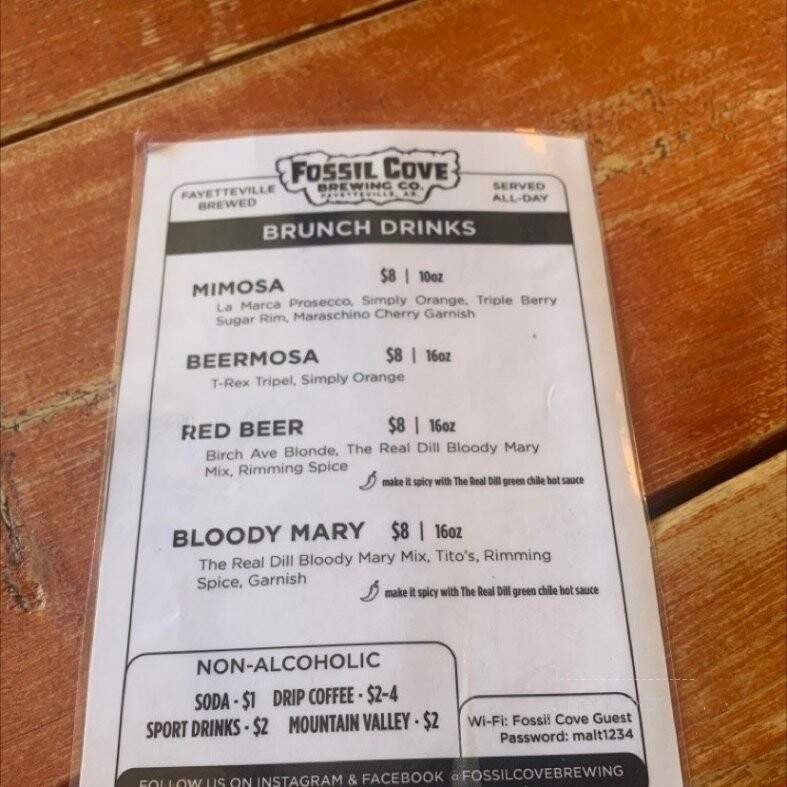 FOSSIL COVE
BREWING CO.
FAYETTEVILLE, AR.
FAYETTEVILLE
BREWED
SERVED
ALL-DAY
BRUNCH DRINKS
MIMOSA $8 | 10oz
La Marca Prosecco, Simply Orange, Triple Berry
Sugar Rim, Maraschino Cherry Garnish
BEERMOSA $8 | 16oz
T-Rex Tripel, Simply Orange
RED BEER $8 | 16oz
Birch Ave Blonde, The Real Dill Bloody Mary
Mix, Rimming Spice
make it spicy with The Real Dill green chile hot sauce
BLOODY MARY $8 | 16oz
The Real Dill Bloody Mary Mix, Tito's, Rimming
Spice, Garnish
make it spicy with The Real Dill green chile hot sauce
NON-ALCOHOLIC
SODA - $1 DRIP COFFEE - $2-4
SPORT DRINKS - $2 MOUNTAIN VALLEY - $2
Wi-Fi: Fossil Cove Guest
Password: malt1234
FOLLOW US ON INSTAGRAM & FACEBOOK @FOSSILCOVEBREWING